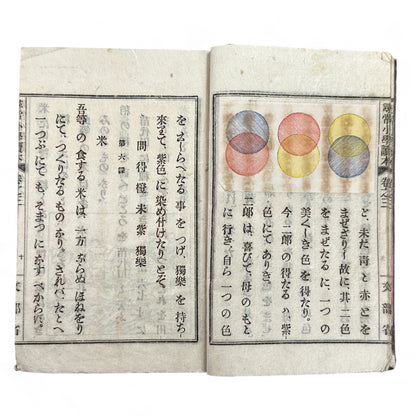 尋常小學讀本 卷之三
文部省
ど、未だ青と赤とを
まぜざりし故に、其二色
をまぜたるに、一つの
美くしき色を得たり。
今二郎の得たるハ、紫
色にてありき。
二郎は、喜びて、母のもと
に行き、自ら一つの色
をこしらへたる事をつげ、獨樂を持ち
來りて、紫色に染め付けたりとぞ。
問 得 未 紫 獨樂
第六課
米
吾等の食する米は、一方ならぬほねをり
にて、つくりたるものなり。されバ、たとへ
一つぶにても、そまつになすべからず。
尋常小學讀本 卷之三
文部省